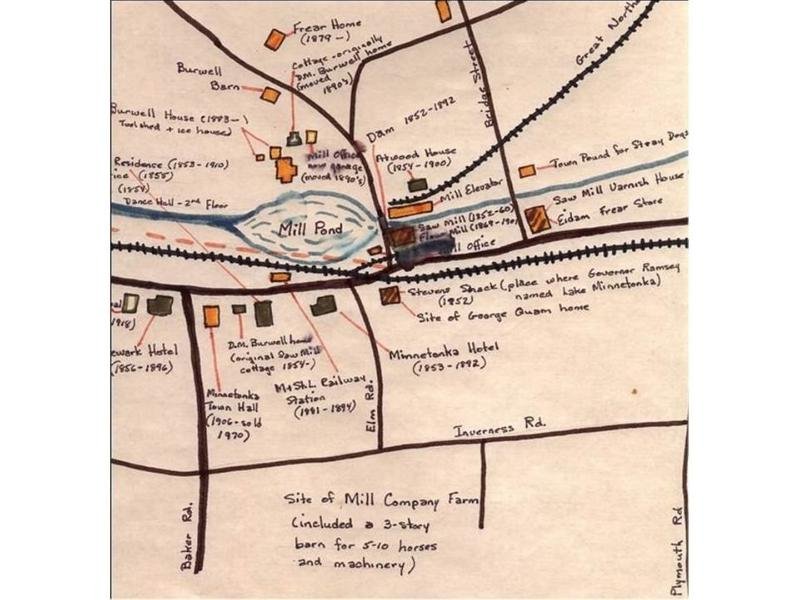 Frear Home
(1879 -)
Cottage - originally
D.M. Burwell home
(moved
1890's)
Great North
Bridge Street
Burwell
Barn
Burwell House (1883-)
Tool shed + ice house
Mill Office
now garage
(moved 1890's)
Dam 1852-1892
Atwood House
(1854-1900)
Mill Elevator
Town Pound for Stray Dogs
Residence (1853-1910)
ice (1855)
Dance Hall - 2nd Floor
Mill Pond
Saw Mill (1852-60)
Mill (1869-190
ll Office
Saw Mill Varnish House
Eidam Frear Store
Stevens Shack (place where Governor Ramsey
(1852) named Lake Minnetonka)
Site of George Quam home
1918)
ewark Hotel
(1856-1896)
D.M. Burwell house
(original Saw Mill
cottage 1854-)
Minnetonka Hotel
(1853-1892)
Minnetonka
Town Hall
(1906-sold
1970)
M+St.L Railway
Station
(1881-1894)
Elm Rd.
Inverness Rd.
Site of Mill Company Farm
(included a 3-story
barn for 5-10 horses
and machinery)
Baker Rd.
Plymouth Rd